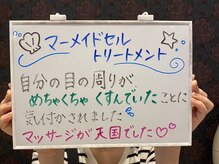 マーメイドセル
トリートメント
自分の目の周りが
めちゃくちゃ くすんでいた ことに
気付かされました
マッサージが 天国でした♡♡